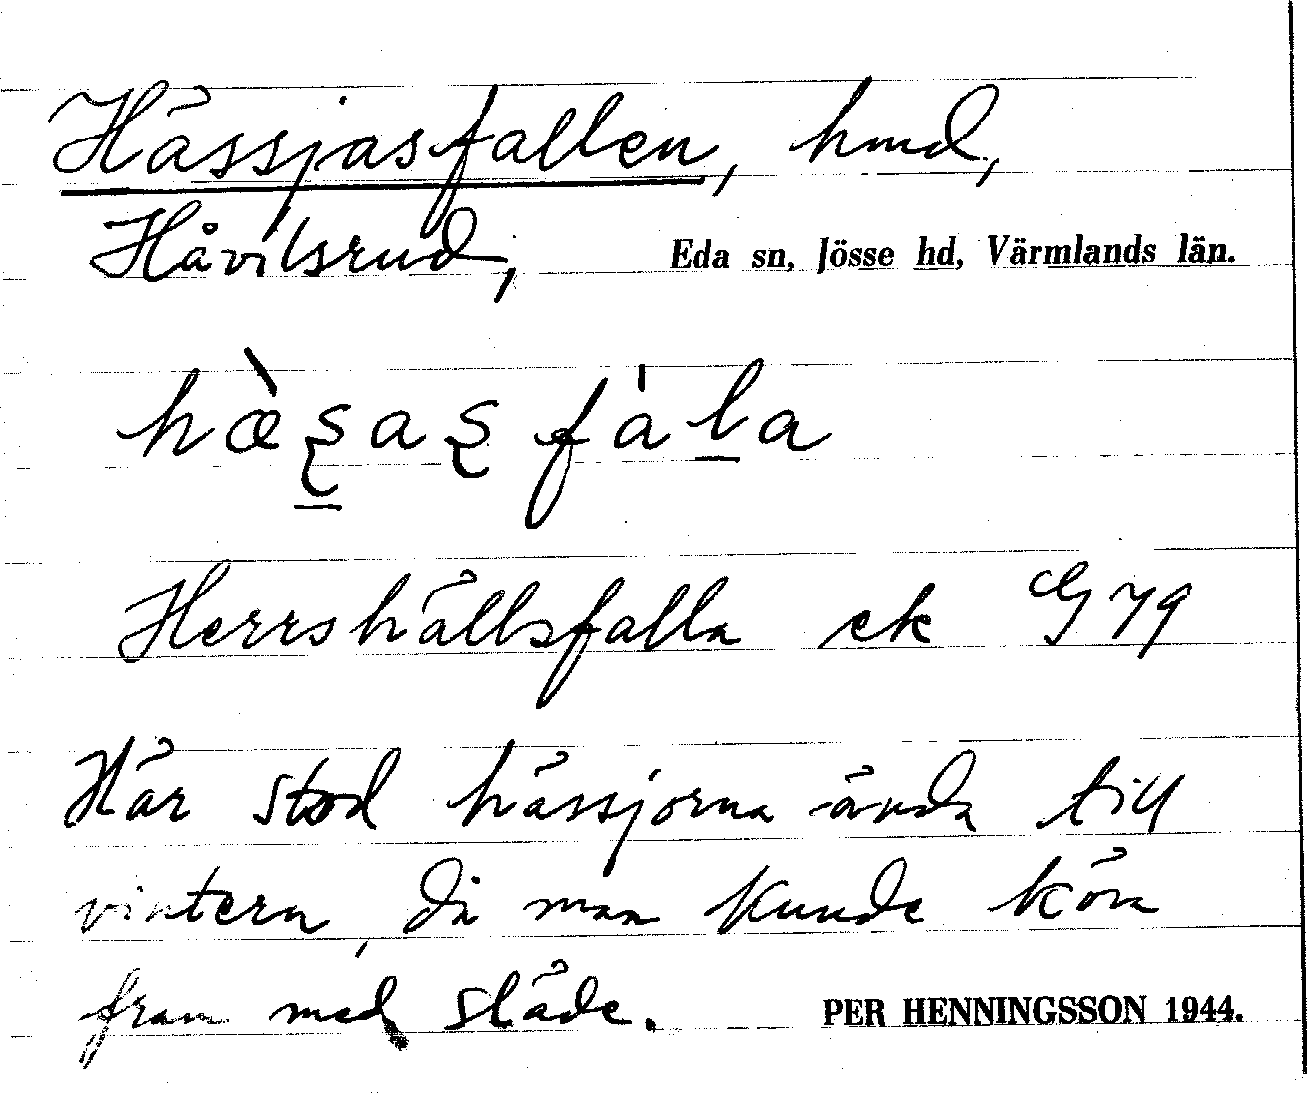 Hässjasfallen, hmd,
Håvilsrud, Eda sn, Jösse hd, Värmlands län.
hæ̀ʂaʂ fàla
Herrshällsfalla ek G 79
Här stod hässjorna ända till
vintern, då man kunde köra
fram med släde. PER HENNINGSSON 1944.